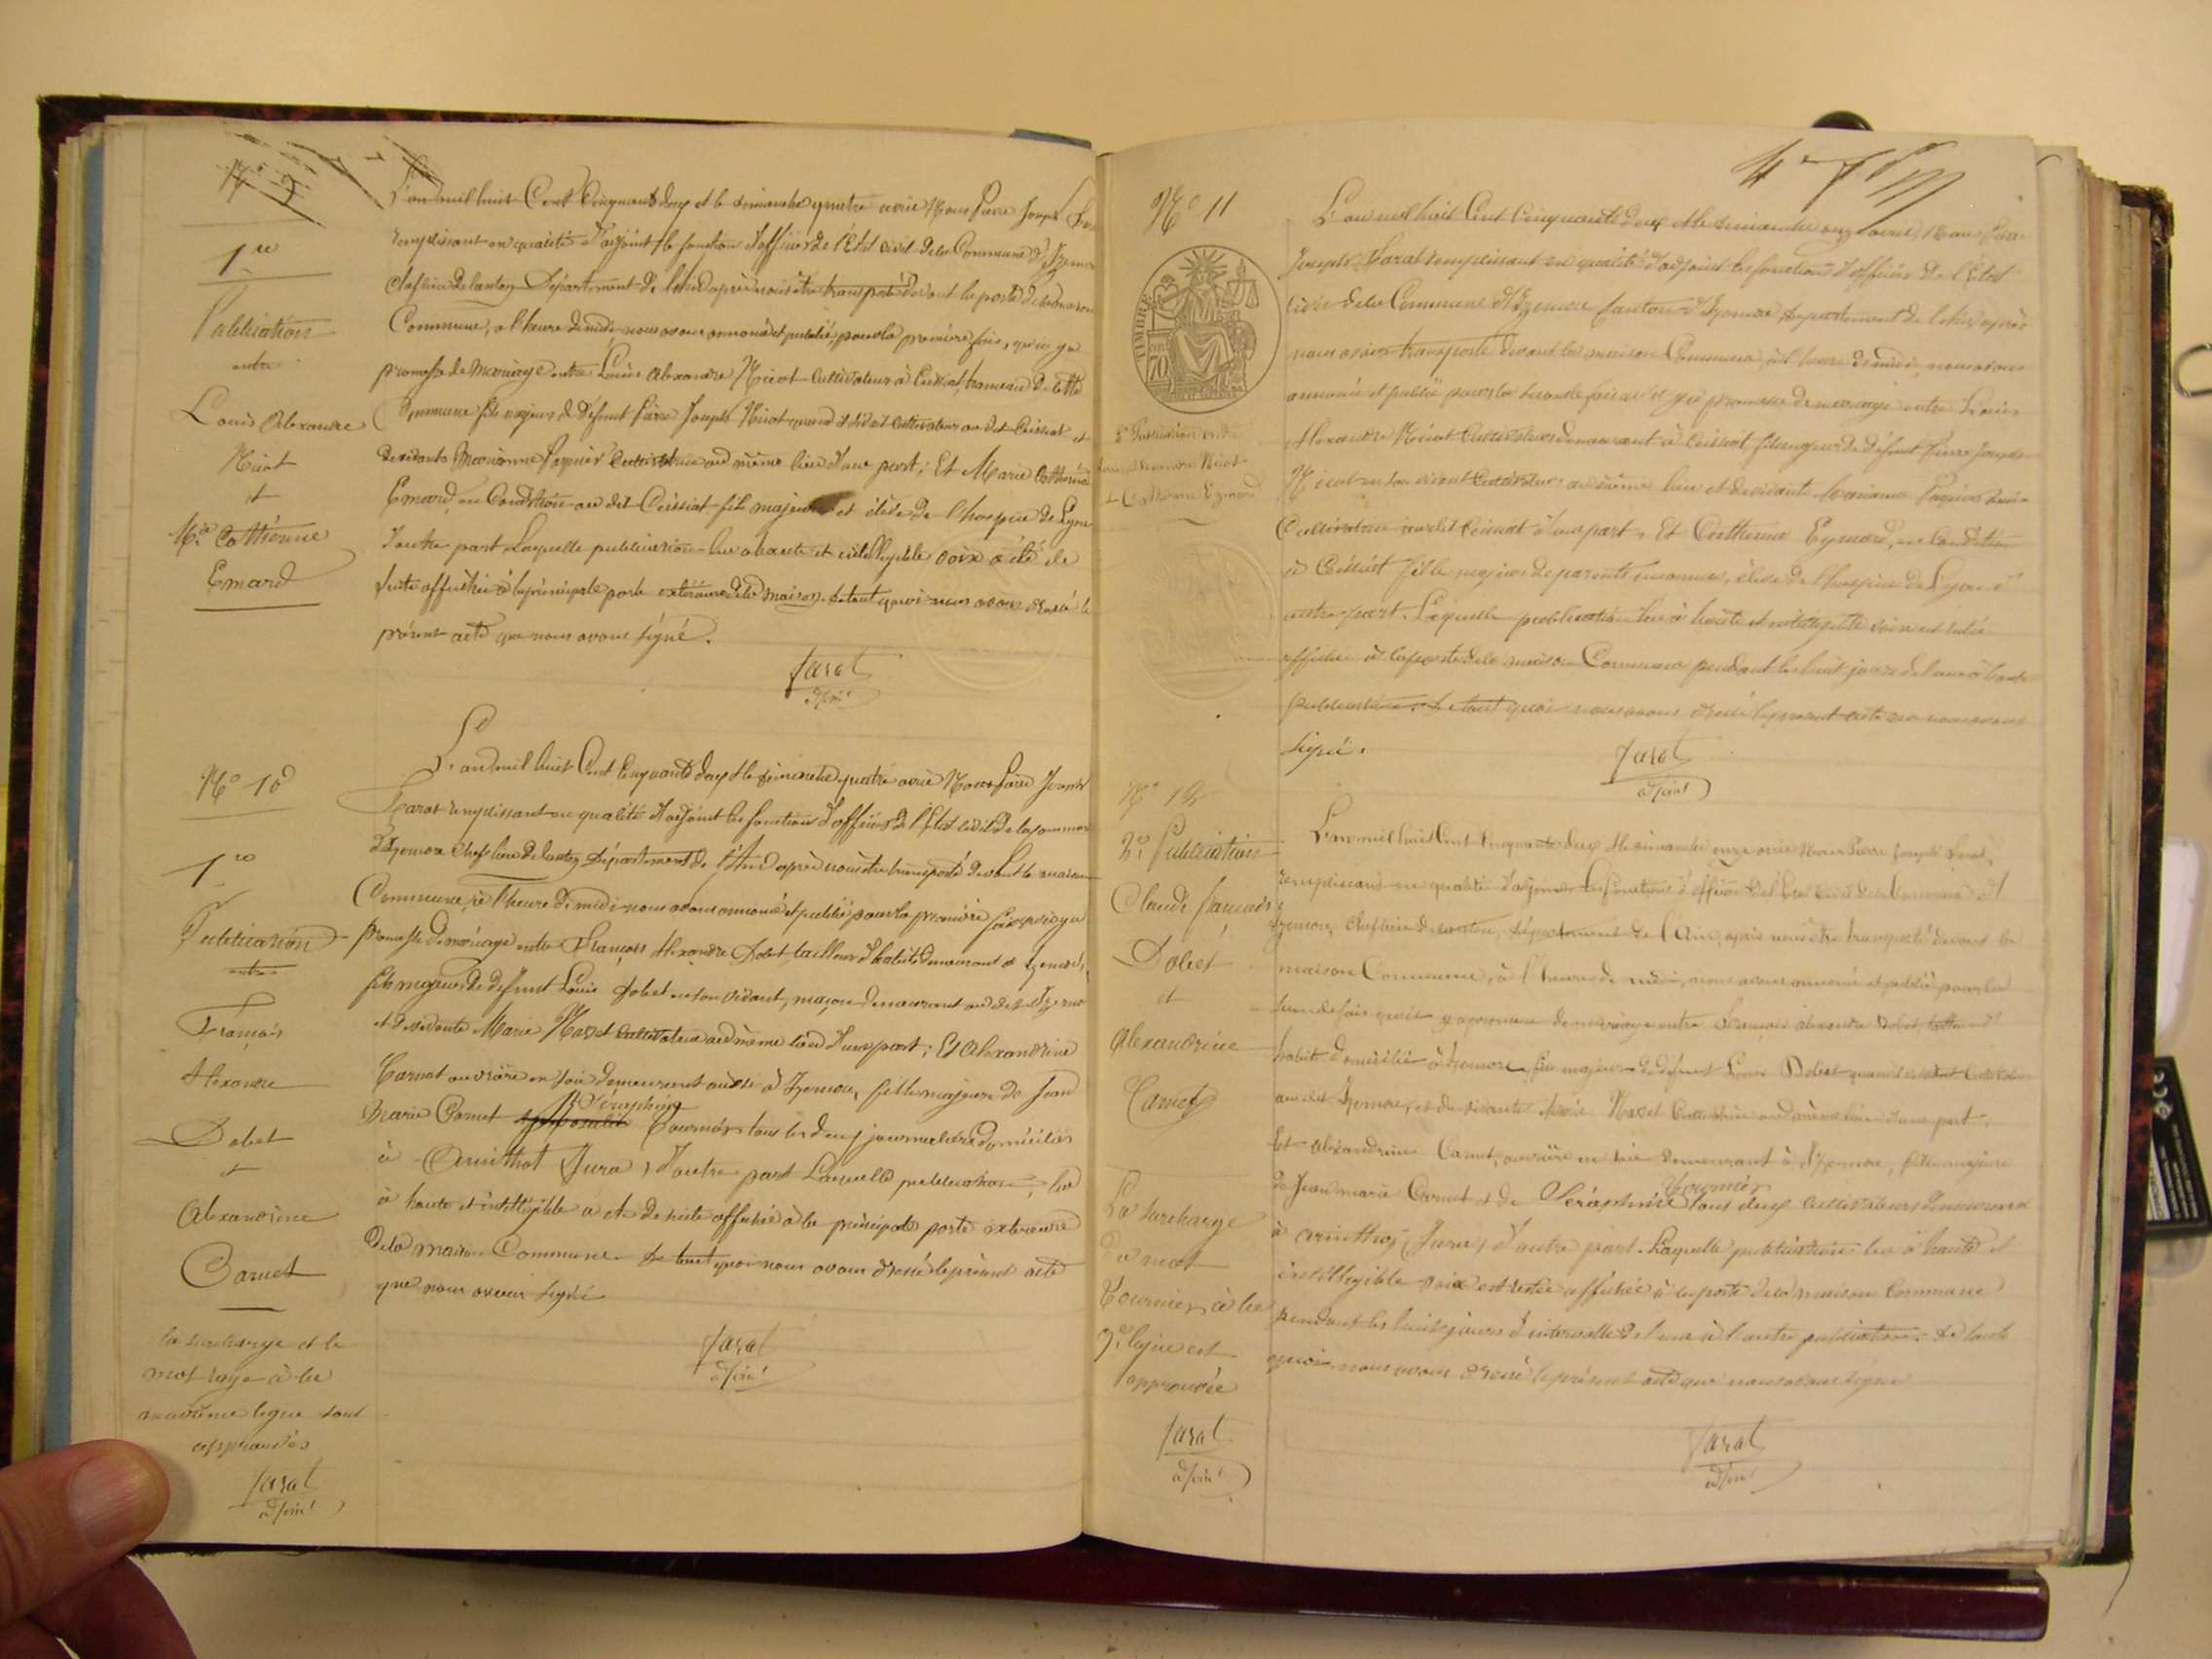 N° 9
1re
Publication
entre
Louis Alexandre
Nicot
et
Mie Cathérine
Emard
L'an mil huit Cent Cinquante deux et le dimanche quatre avril Nous Pierre Joseph
remplissant en qualité d'adjoint les fonctions d'officier de l'Etat civil de la Commune d'Izernore
chef lieu de canton Département de l'Ain après nous être transporté devant la porte de la maison
Commune, à l'heure de midi, nous avons annoncé et publié pour la première fois, qu'il y a
promesse de mariage entre Louis Alexandre Nicot cultivateur à Ceissiat, hameau de cette
Commune fils majeur de défunt Pierre Joseph Nicot quand il vivait cultivateur au dit Ceissiat et
de vivante Marianne cultivatrice au même lieu d'une part; Et Marie Cathérine
Emard en Condition au dit Ceissiat fille majeure et élève de l'hospice de Lyon
d'autre part. Laquelle publication lue à haute et intelligible voix a été de
suite affichée à la principale porte extérieure de la maison. De tout quoi nous avons dressé le
présent acte que nous avons signé.
Jarat
adjoint
N° 10
1re
Publication
entre
François
Alexandre
Dobet
et
Alexandrine
Carnet
la surcharge et le
mot rayé à la
neuvième ligne sont
approuvés
Jarat
adjoint
L'an mil huit Cent Cinquante deux et le dimanche quatre avril Nous Pierre Joseph
Jarat remplissant en qualité d'adjoint les fonctions d'officier de l'Etat civil de la commune
d'Izernore chef lieu de canton Département de l'Ain après nous être transporté devant la maison
Commune, à l'heure de midi nous avons annoncé et publié pour la première fois qu'il y a
promesse de mariage entre François Alexandre Dobet tailleur d'habits demeurant à Izernore,
fils majeur de défunt Louis Dobet en son vivant, maçon demeurant au dit Izernore
et de vivante Marie cultivatrice au même lieu d'une part; Et Alexandrine
Carnet ouvrière en soie demeurant aussi à Izernore, fille majeure de Jean
Séraphine
Marie Carnet Fournier tous les deux journaliers domiciliés
à Arinthod (Jura) d'autre part Laquelle publication, lue
à haute et intelligible a été de suite affichée à la principale porte extérieure
de la maison Commune. De tout quoi nous avons dressé le présent acte
que nous avons signé
Jarat
adjoint
N° 11
TIMBRE
70
2e Publication entre
Louis Alexandre Nicot
et Catherine Eymard
L'an mil huit Cent Cinquante deux et le dimanche onze avril, Nous Pierre
Joseph Jarat remplissant en qualité d'adjoint les fonctions d'officier de l'Etat
civil de la Commune d'Izernore Canton d'Izernore, département de l'Ain, après
nous être transporté devant la maison Commune, à l'heure de midi, nous avons
annoncé et publié pour la seconde fois qu'il y a promesse de mariage entre Louis
Alexandre Nicot Cultivateur demeurant à Ceissiat, fils majeur de défunt Pierre Joseph
Nicot en son vivant Cultivateur au même lieu et de vivante Marianne
Cultivatrice au dit Ceissiat d'une part, Et Catherine Eymard, en Condition
à Ceissiat fille majeure de parents inconnus, élève de l'hospice de Lyon d'
autre part. Laquelle publication lue à haute et intelligible voix est restée
affichée à la porte de la maison Commune pendant les huit jours de l'une à l'autre
publication. De tout quoi nous avons dressé le présent acte que nous avons
signé.
Jarat
adjoint
N° 12
2e Publication
Claude François
Dobet
et
Alexandrine
Carnet
La surcharge
du mot
Fournier à la
9e ligne est
approuvée
Jarat
adjoint
L'an mil huit Cent Cinquante deux et le dimanche onze avril Nous Pierre Joseph Jarat,
remplissant en qualité d'adjoint les fonctions d'officier de l'Etat civil de la Commune d'
Izernore, chef lieu de canton, département de l'Ain, après nous être transporté devant la
maison Commune, à l'heure de midi, nous avons annoncé et publié pour la
seconde fois qu'il y a promesse de mariage entre François Alexandre Dobet, tailleur d'
habits domicilié à Izernore fils majeur de défunt Louis Dobet quand il vivait Cultivateur
au dit Izernore, et de vivante Marie Cultivatrice au même lieu d'une part.
Et Alexandrine Carnet, ouvrière en soie demeurant à Izernore, fille majeure
Fournier
de Jean Marie Carnet et de Séraphine tous deux cultivateurs demeurant
à Arinthod (Jura) d'autre part. Laquelle publication lue à haute et
intelligible voix est restée affichée à la porte de la maison Commune
pendant les huit jours d'intervalle de l'une à l'autre publication. De tout
quoi nous avons dressé le présent acte que nous avons signé
Jarat
adjoint